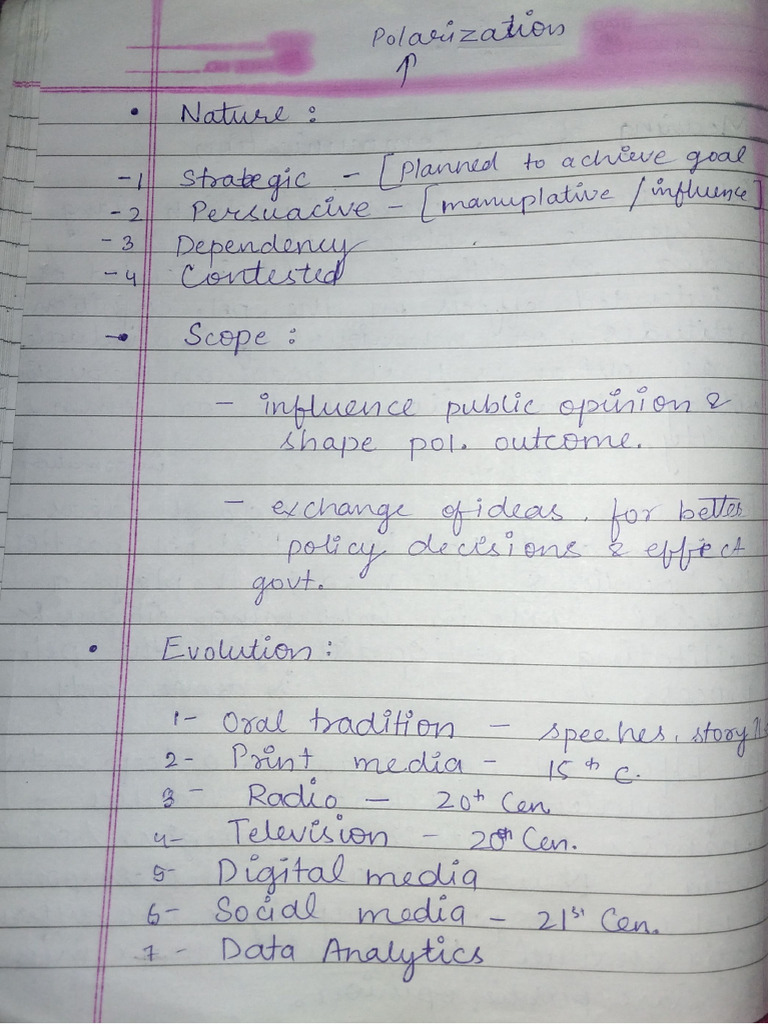 Polarization
↑
• Nature :
-1 Strategic - [Planned to achieve goal
-2 Persuacive - [manuplative / influence]
-3 Dependency
-4 Contested
-• Scope :
- influence public opinion &
shape pol. outcome.
- exchange of ideas, for better
policy decisions & effect
govt.
• Evolution :
1- Oral tradition - speehes, story
2- Print media - 15th C.
3- Radio - 20th Cen
4- Television - 20th Cen.
5- Digital media
6- Social media - 21st Cen.
7- Data Analytics